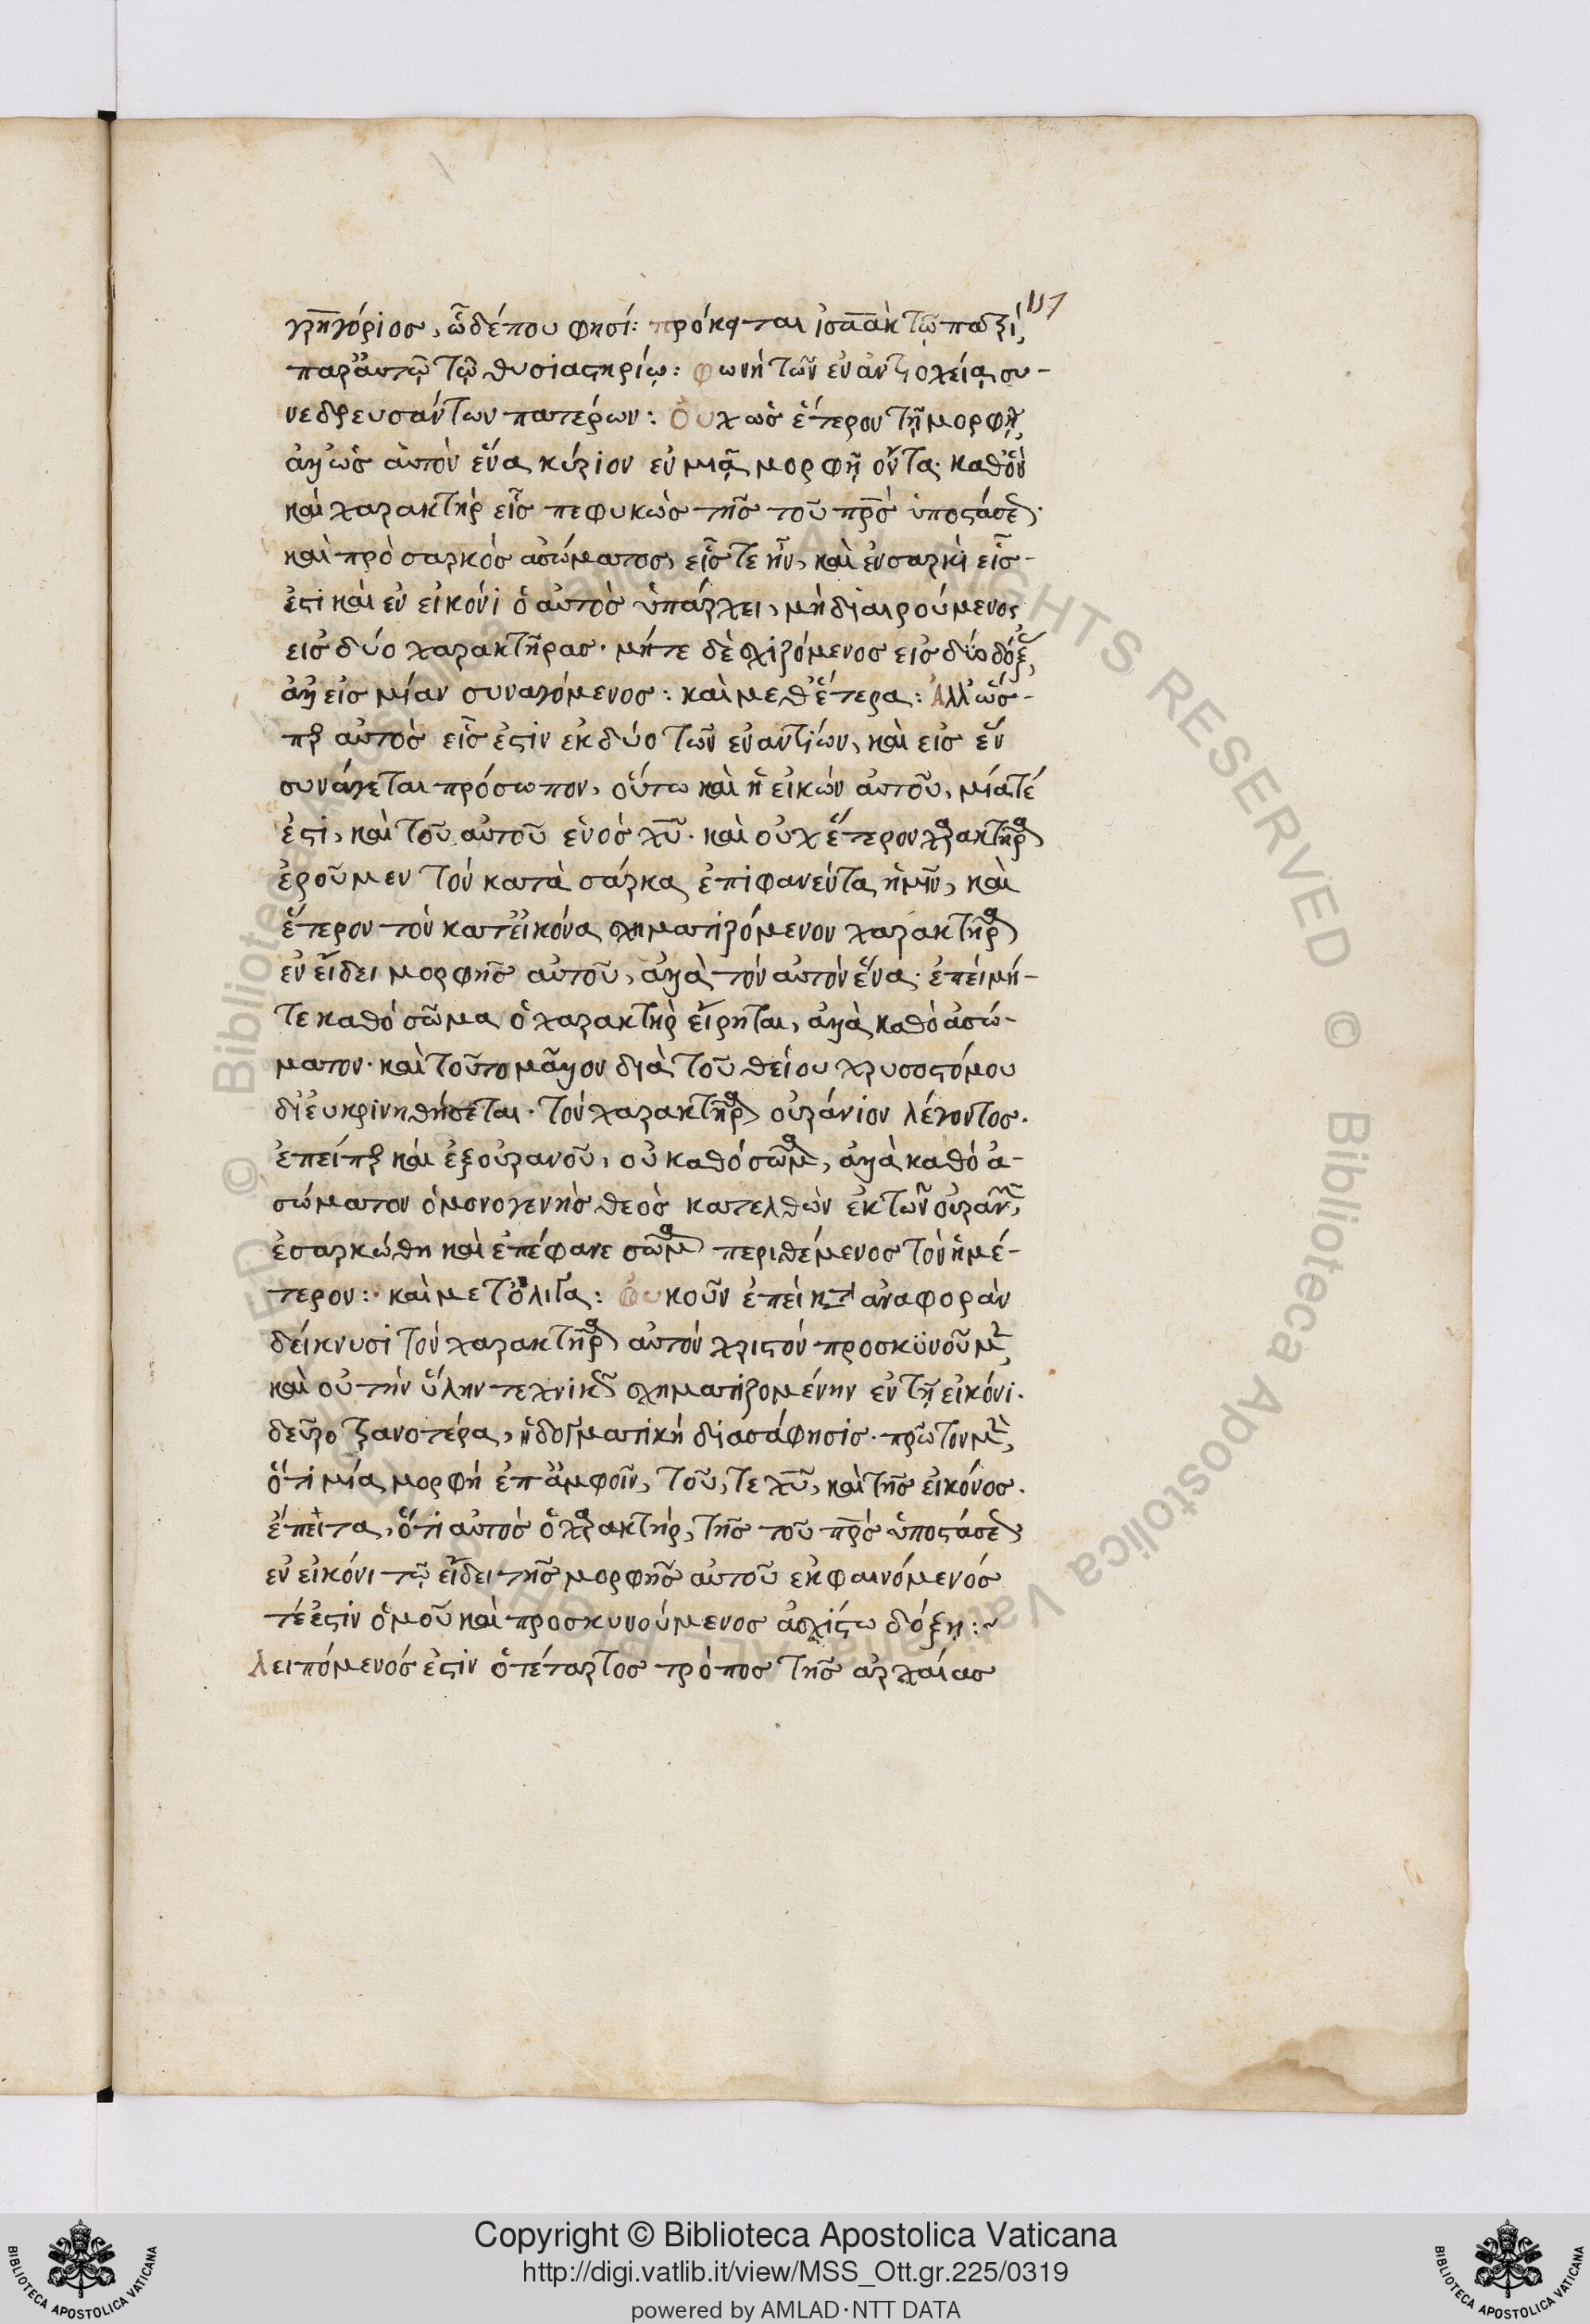 117
γρηγόριος, ὧδέ που φησί: πρόκειται ἰσαὰκ τῷ πατρὶ,
παρ' αὐτῷ τῷ θυσιαστηρίῳ: φωνὴ τῶν ἐν ἀντιοχείᾳ συ-
νεδρευσάντων πατέρων: Οὐχ ὡς ἕτερον τῇ μορφῇ,
ἀλλ' ὡς αὐτὸν ἕνα κύριον ἐν μιᾷ μορφῇ ὄντα· καθὸ
καὶ χαρακτὴρ εἷς πεφυκὼς τῆς τοῦ πρς ὑποστάσεως·
καὶ πρὸ σαρκὸς ἀσώματος, εἷς τε ἦν, καὶ ἐν σαρκὶ εἷς
ἐστι καὶ ἐν εἰκόνι ὁ αὐτὸς ὑπάρχει, μὴ διαιρούμενος
εἰς δύο χαρακτῆρας· μήτε δὲ σχιζόμενος εἰς δύο δόξας,
ἀλλ' εἰς μίαν συναγόμενος: καὶ μεθ' ἕτερα: Ἀλλ' ὥσ-
περ αὐτὸς εἷς ἐστιν ἐκ δύο τῶν ἐναντίων, καὶ εἰς ἓν
συνάγεται πρόσωπον, οὕτω καὶ ἡ εἰκὼν αὐτοῦ, μία τέ
ἐστι, καὶ τοῦ αὐτοῦ ἑνὸς χυ· καὶ οὐχ ἕτερον χαρακτῆρα
ἐροῦμεν τὸν κατὰ σάρκα ἐπιφανέντα ἡμῖν, καὶ
ἕτερον τὸν κατ' εἰκόνα σχηματιζόμενον χαρακτῆρα
ἐν εἴδει μορφῆς αὐτοῦ, ἀλλὰ τὸν αὐτὸν ἕνα· ἐπεὶ μή-
τε καθὸ σῶμα ὁ χαρακτὴρ εἴρηται, ἀλλὰ καθὸ ἀσώ-
ματον· καὶ τοῦτο μᾶλλον διὰ τοῦ θείου χρυσοστόμου
διευκρινηθήσεται· τὸν χαρακτῆρα οὐράνιον λέγοντος·
ἐπείπερ καὶ ἐξ οὐρανοῦ, οὐ καθὸ σῶμα, ἀλλὰ καθὸ ἀ-
σώματον ὁ μονογενὴς θεὸς κατελθὼν ἐκ τῶν οὐρανῶν,
ἐσαρκώθη καὶ ἐπέφανε σῶμα περιθέμενος τὸ ἡμέ-
τερον: καὶ μετ' ὀλίγα: Οὐκοῦν ἐπεὶ κατ' ἀναφορὰν
δείκνυσι τὸν χαρακτῆρα αὐτὸν χριστὸν προσκυνοῦμεν,
καὶ οὐ τὴν ὕλην τεχνικῶς σχηματιζομένην ἐν τῇ εἰκόνι·
δεῦρο τρανοτέρα, ἡ δογματικὴ διασάφησις· πρῶτον μὲν,
ὅτι μία μορφὴ ἐπ' ἀμφοῖν, τοῦ, τε χυ, καὶ τῆς εἰκόνος·
ἔπειτα, ὅτι αὐτὸς ὁ χαρακτὴρ, τῆς τοῦ πρς ὑποστάσεως
ἐν εἰκόνι τῷ εἴδει τῆς μορφῆς αὐτοῦ ἐκφαινόμενός
τέ ἐστιν ὁμοῦ καὶ προσκυνούμενος ἀσχίστω δόξῃ:~
λειπόμενός ἐστιν ὁ τέταρτος τρόπος τῆς ἀρχαίας
Copyright © Biblioteca Apostolica Vaticana
http://digi.vatlib.it/view/MSS_Ott.gr.225/0319
powered by AMLAD·NTT DATA